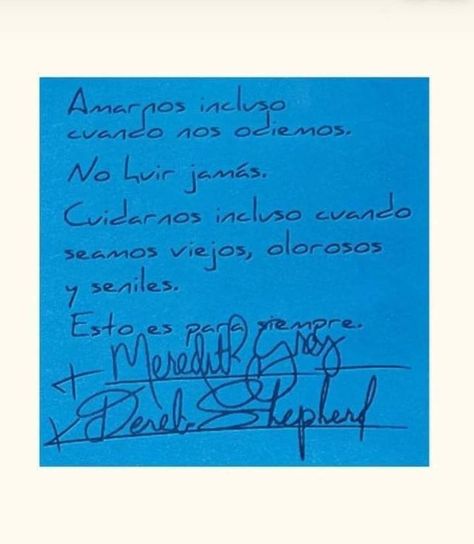 Amarnos incluso
cuando nos odiemos.
No huir jamás.
Cuidarnos incluso cuando
seamos viejos, olorosos
y seniles.
Esto es para siempre.
+ Meredith Grey
x Derek Shepherd